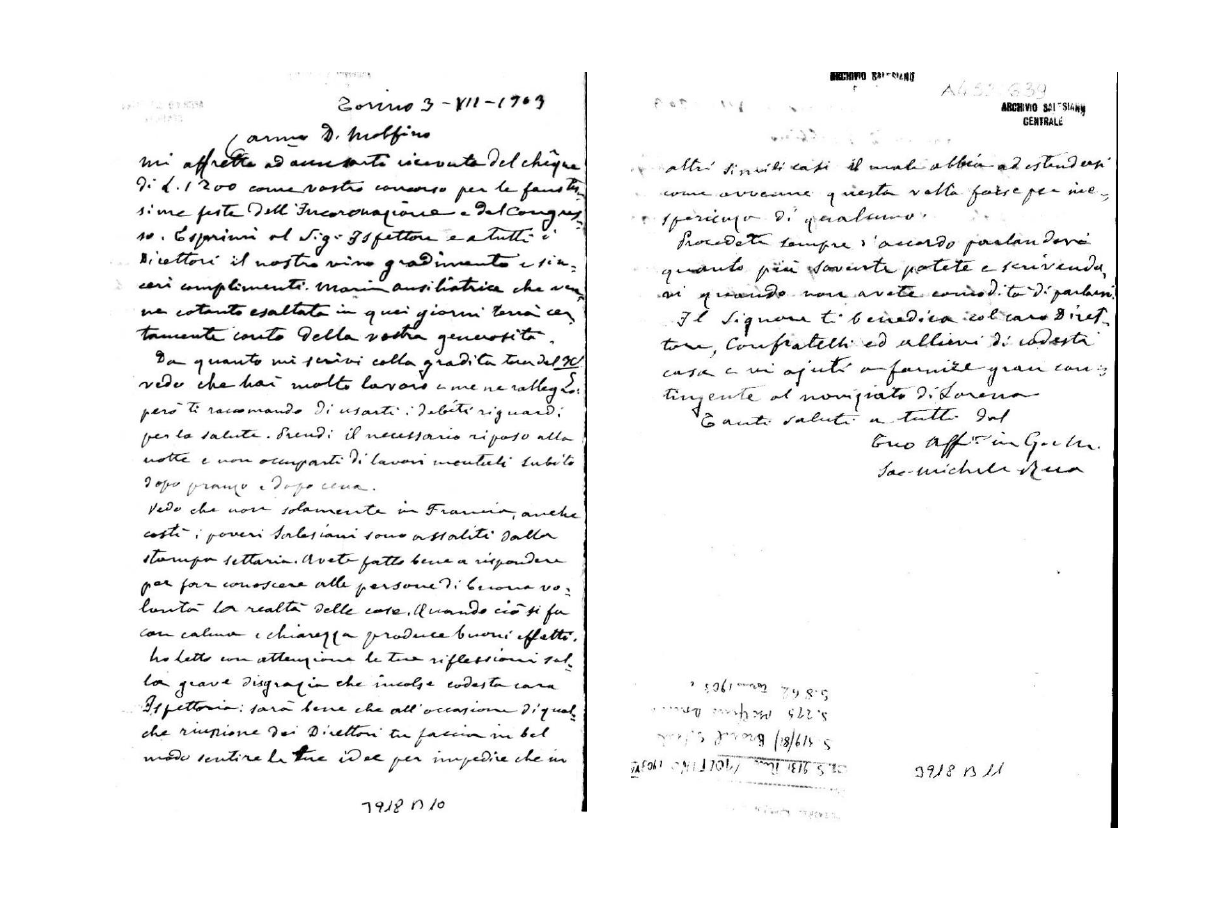 Torino 3-VII-1903
Carmo D. Molfino
mi affretto ad accusarti ricevuta del chèque
di L. 1200 come vostro concorso per le faustis-
sime feste dell'Incoronazione e del Congres-
so. Esprimi al Sig. Ispettore e a tutti i
Direttori il nostro vivo gradimento e sin-
ceri complimenti. Maria Ausiliatrice che ven-
ne cotanto esaltata in quei giorni terrà cer-
tamente conto della vostra generosità.
Da quanto mi scrivi colla gradita tua del
vedo che hai molto lavoro e me ne rallegro:
però ti raccomando di usarti i debiti riguardi
per la salute. Prendi il necessario riposo alla
notte e non occuparti di lavori mentali subito
dopo pranzo e dopo cena.
Vedo che non solamente in Francia, anche
costì i poveri Salesiani sono assaliti dalla
stampa settaria. Avete fatto bene a rispondere
per far conoscere alle persone di buona vo-
lontà la realtà delle cose. Quando ciò si fa
con calma e chiarezza produce buoni effetti.
Ho letto con attenzione le tue riflessioni sul-
la grave disgrazia che incolse codesta cara
Ispettoria: sarà bene che all'occasione di qual-
che riunione dei Direttori tu faccia in bel
modo sentire le tue idee per impedire che in
3918 B 10
ARCHIVIO SALESIANO
A452 639
ARCHIVIO SALESIANO
CENTRALE
altri simili casi il male abbia ad estendersi
come avvenne questa volta forse per ine-
sperienza di qualcuno.
Procedete sempre d'accordo parlandovi
quanto più sovente potete e scrivendo-
vi quando non avete comodità di parlarvi.
Il Signore ti benedica col caro Diret-
tore, Confratelli ed allievi di codesta
casa e vi ajuti a fornire gran con-
tingente al noviziato di Lorena
Tanti saluti a tutti dal
Tuo Aff.mo in G. e M.
Sac. Michele Rua
3918 B 11